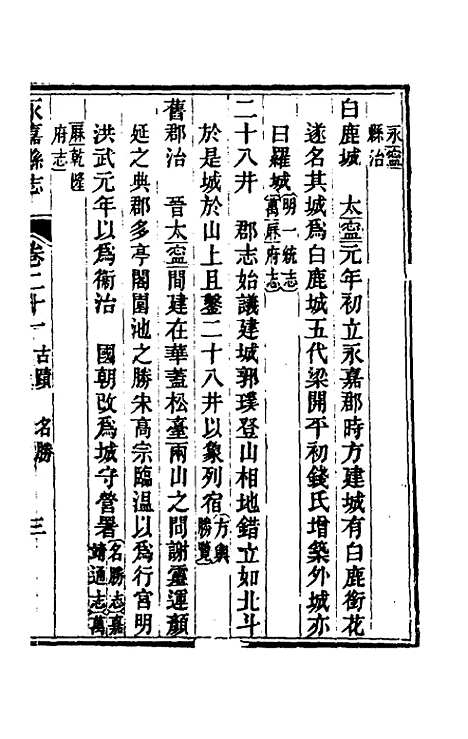 永寧
縣治
白鹿城　太寧元年初立永嘉郡時方建城有白鹿銜花
遂名其城爲白鹿城五代梁開平初錢氏增築外城亦
曰羅城明一統志萬厤府志
二十八井　郡志始議建城郭璞登山相地錯立如北斗
於是城於山上且鑿二十八井以象列宿方輿勝覽
舊郡治　晉太寧間建在華蓋松臺兩山之間謝靈運顏
延之典郡多亭閣園池之勝宋高宗臨温以爲行宮明
洪武元年以爲衞治　國朝改爲城守營署名勝志嘉靖通志萬
厤乾隆
府志
永嘉縣志　卷二十一　古蹟　名勝　三